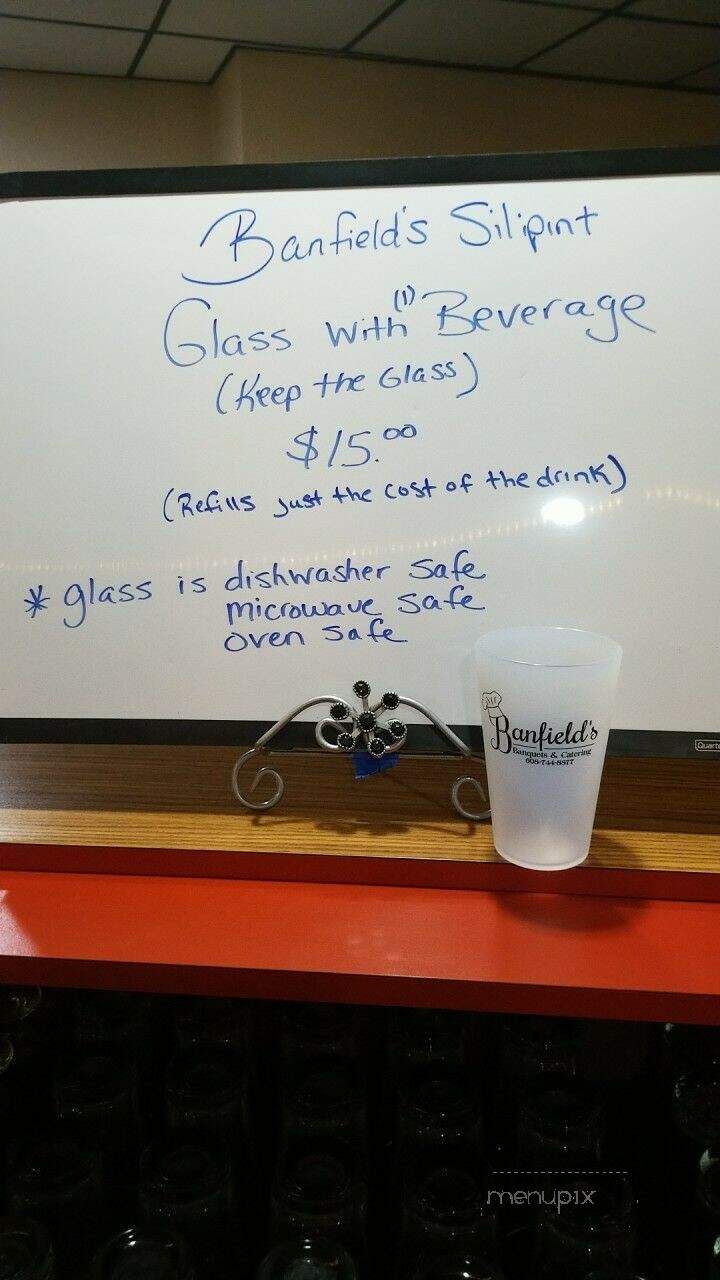 Banfield's Silipint
Glass with (1) Beverage
(Keep the Glass)
$15.00
(Refills just the cost of the drink)
* glass is dishwasher safe
microwave safe
oven safe
Banfield's
Banquets & Catering
608-744-8877
Quarte
menupix